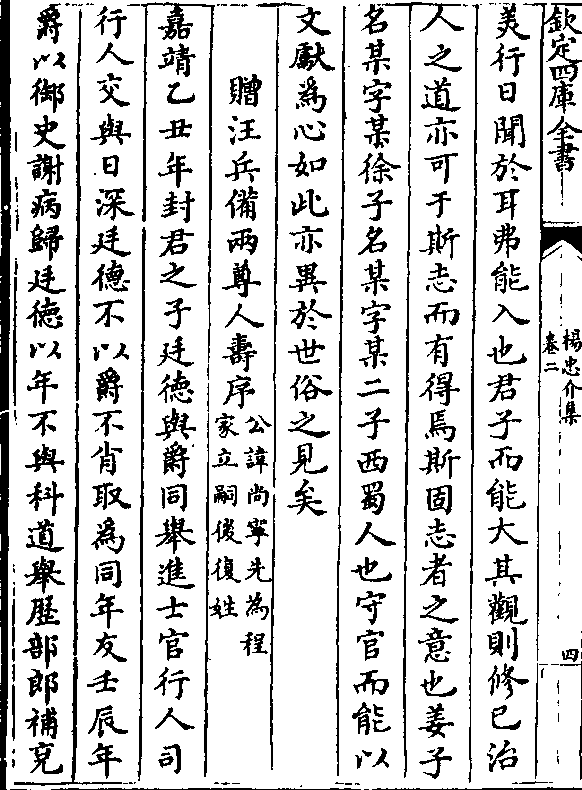 欽定四庫全書
楊忠介集
卷二
四
美行日聞於耳弗能入也君子而能大其觀則修已治
人之道亦可于斯志而有得焉斯固志者之意也姜子
名某字某徐子名某字某二子西蜀人也守官而能以
文獻為心如此亦異於世俗之見矣
贈汪兵備兩尊人壽序公諱尚寧先為程
家立嗣後復姓
嘉靖乙丑年封君之子廷德與爵同舉進士官行人司
行人交與日深廷德不以爵不肖取為同年友壬辰年
爵以御史謝病歸廷德以年不與科道舉歷部郎補兗